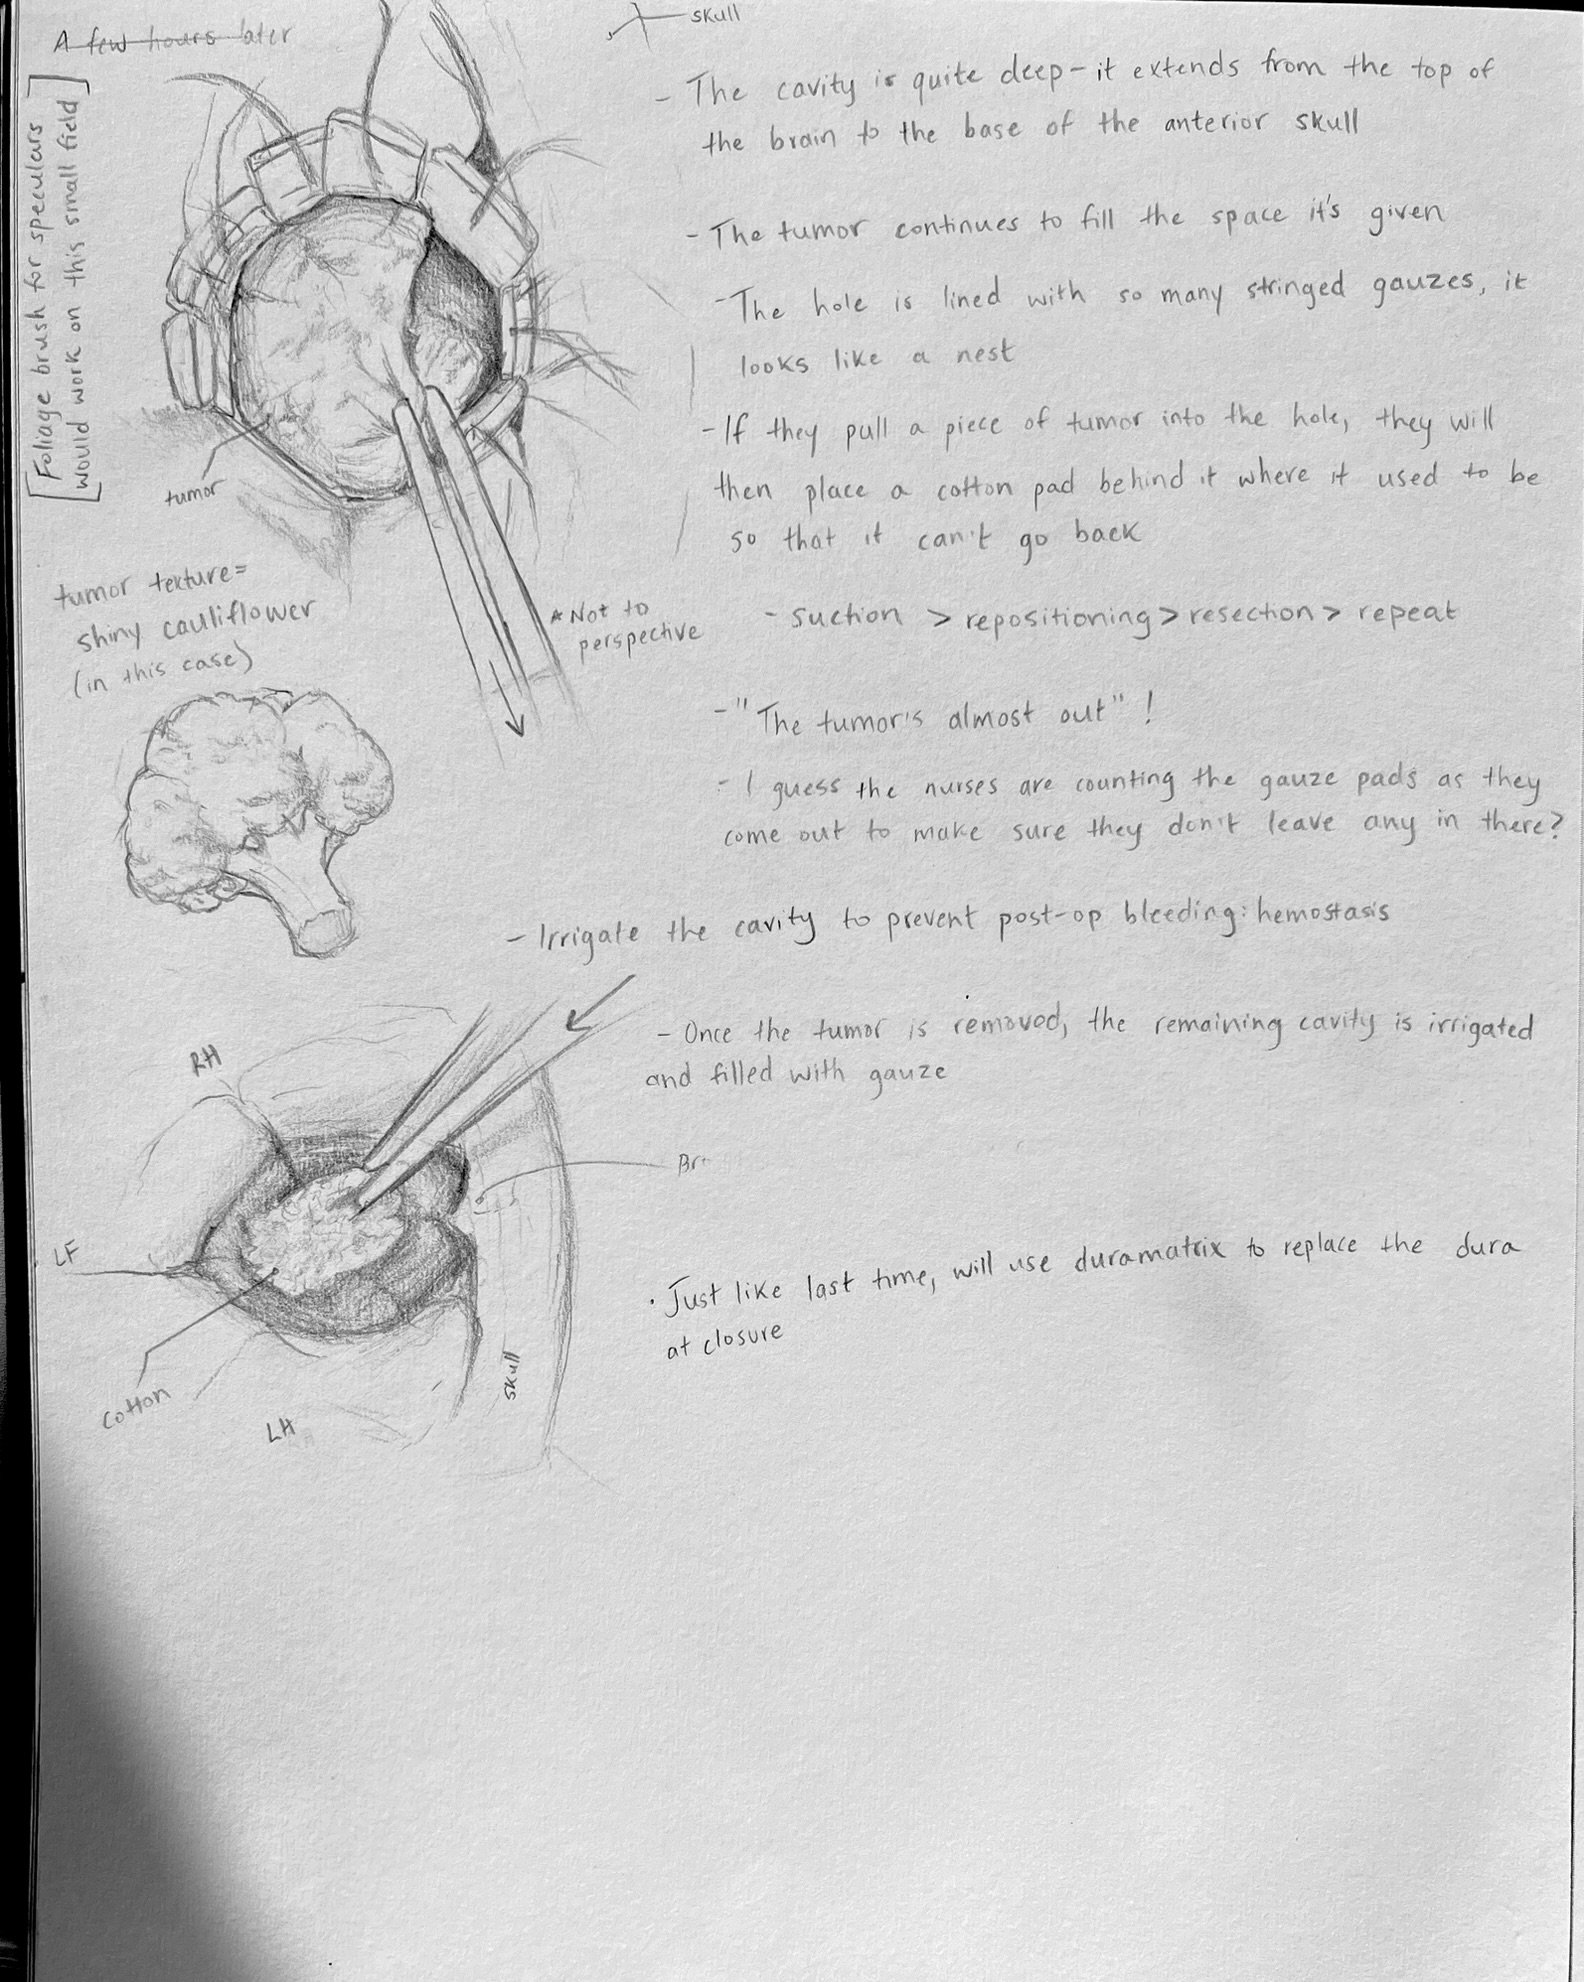 A few hours later
[Foliage brush for speculars
would work on this small field]
tumor
tumor texture=
shiny cauliflower
(in this case)
* Not to
perspective
skull
- The cavity is quite deep - it extends from the top of
the brain to the base of the anterior skull
- The tumor continues to fill the space it's given
- The hole is lined with so many stringed gauzes, it
looks like a nest
- If they pull a piece of tumor into the hole, they will
then place a cotton pad behind it where it used to be
so that it can't go back
- suction > repositioning > resection > repeat
- "The tumor's almost out" !
- I guess the nurses are counting the gauze pads as they
come out to make sure they don't leave any in there?
- Irrigate the cavity to prevent post-op bleeding: hemostasis
- Once the tumor is removed, the remaining cavity is irrigated
and filled with gauze
RH
LF
cotton
LH
skull
Br
· Just like last time, will use duramatrix to replace the dura
at closure